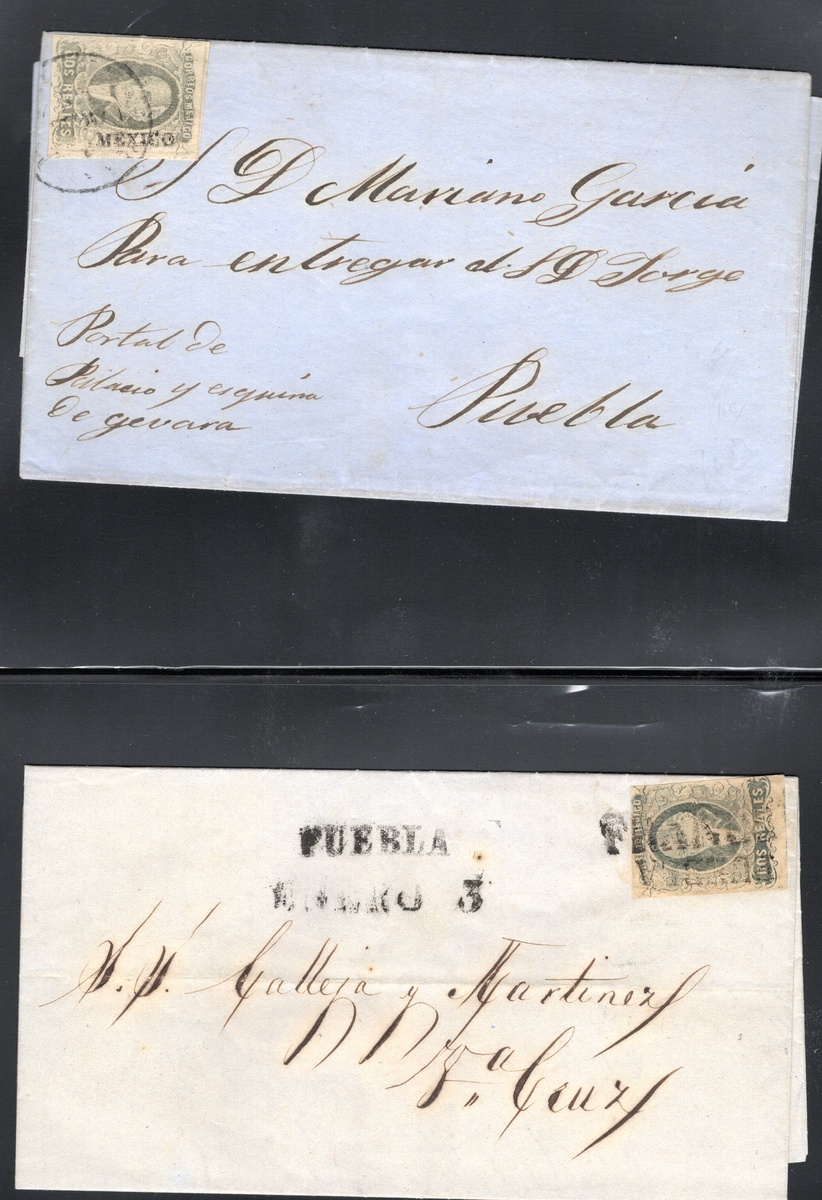 DOS REALES
CORREOS MEJICO
MEXICO
S D Mariano García
Para entregar al S D Jorge
Portal de
Palacio y esquina
de gevara
Puebla
PUEBLA
ENERO 3
MEJICO
DOS REALES
S.S. Calleja y Martinez
Va Cruz